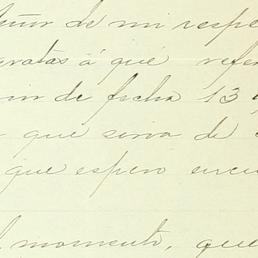 señor de mi respe
gratas á que refer
in de fecha 13 q
que sirva de
que espero encu
l momento, que